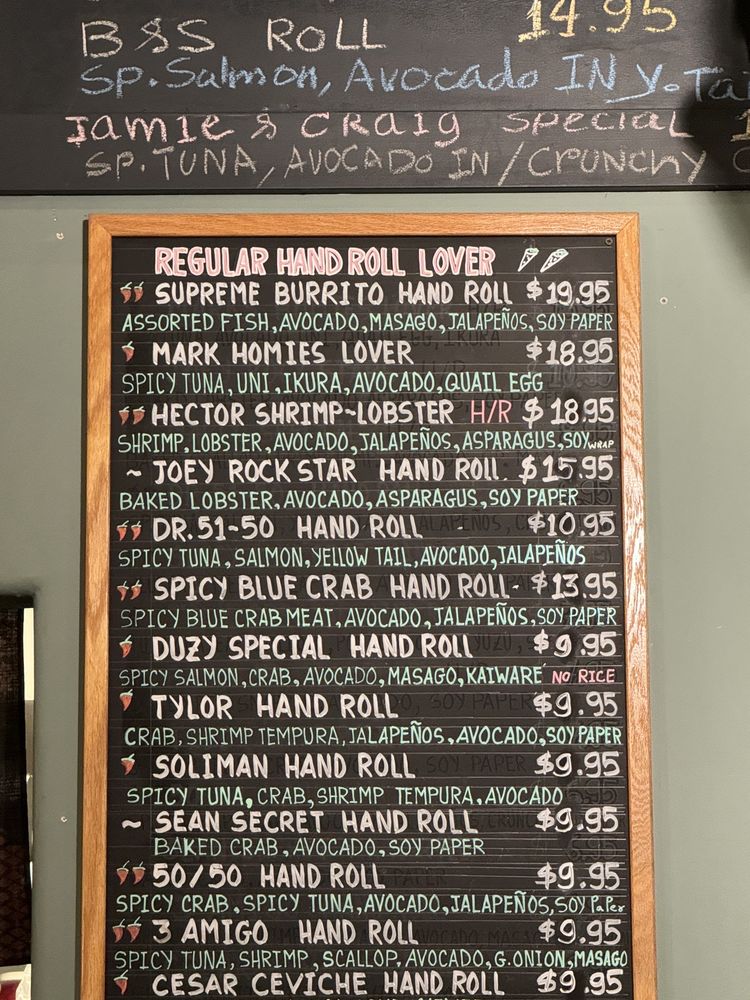 B&S ROLL 14.95
Sp. Salmon, Avocado IN Y.
Jamie & CRaig Special
SP. TUNA, AVOCADO IN / CRUNCHY
REGULAR HAND ROLL LOVER
SUPREME BURRITO HAND ROLL $19.95
ASSORTED FISH, AVOCADO, MASAGO, JALAPEÑOS, SOY PAPER
MARK HOMIES LOVER $18.95
SPICY TUNA, UNI, IKURA, AVOCADO, QUAIL EGG
HECTOR SHRIMP~LOBSTER H/R $18.95
SHRIMP, LOBSTER, AVOCADO, JALAPEÑOS, ASPARAGUS, SOY WRAP
~ JOEY ROCK STAR HAND ROLL. $15.95
BAKED LOBSTER, AVOCADO, ASPARAGUS, SOY PAPER
DR. 51-50 HAND ROLL $10.95
SPICY TUNA, SALMON, YELLOW TAIL, AVOCADO, JALAPEÑOS
SPICY BLUE CRAB HAND ROLL- $13.95
SPICY BLUE CRAB MEAT, AVOCADO, JALAPEÑOS, SOY PAPER
DUZY SPECIAL HAND ROLL $9.95
SPICY SALMON, CRAB, AVOCADO, MASAGO, KAIWARE NO RICE
TYLOR HAND ROLL $9.95
CRAB, SHRIMP TEMPURA, JALAPEÑOS, AVOCADO, SOY PAPER
SOLIMAN HAND ROLL $9.95
SPICY TUNA, CRAB, SHRIMP TEMPURA, AVOCADO
~ SEAN SECRET HAND ROLL $9.95
BAKED CRAB, AVOCADO, SOY PAPER
50/50 HAND ROLL $9.95
SPICY CRAB, SPICY TUNA, AVOCADO, JALAPEÑOS, SOY PaPer
3 AMIGO HAND ROLL $9.95
SPICY TUNA, SHRIMP, SCALLOP, AVOCADO, G.ONION, MASAGO
CESAR CEVICHE HAND ROLL $9.95